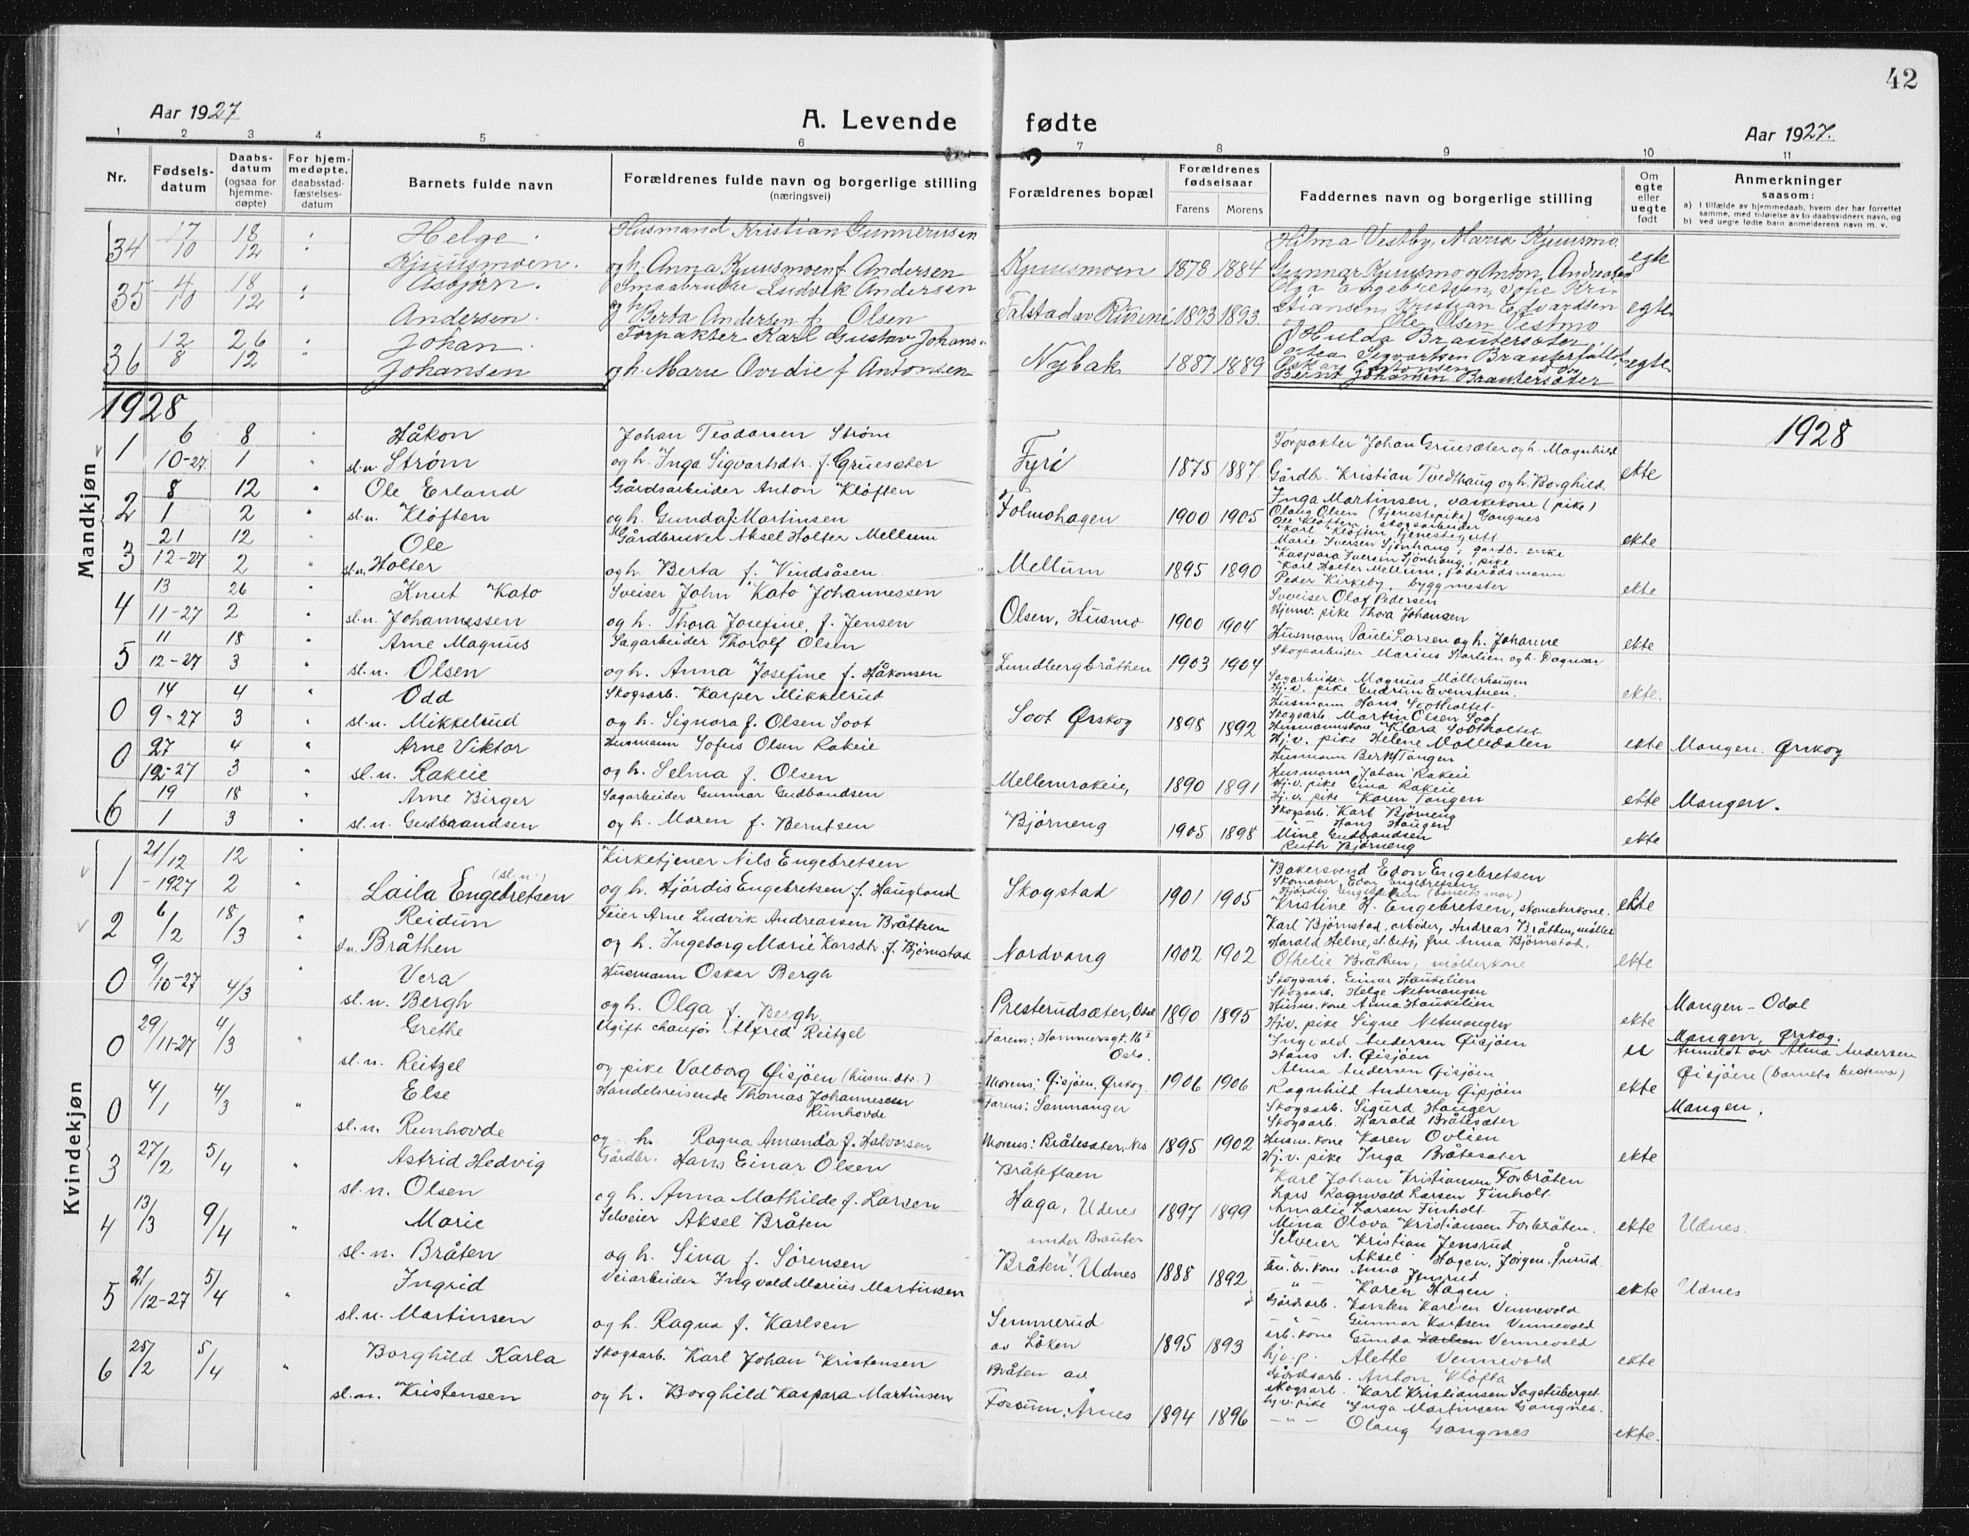 42
Aar 1927
A. Levende fødte
Aar 1927.
1 2 3 4 5 6 7 8 9 10 11
Nr.
Fødsels-datum
Daabs-datum (ogsaa for hjemme-døpte)
For hjem-medøpte, daabsstad-fæstelses-datum
Barnets fulde navn
Forældrenes fulde navn og borgerlige stilling (næringsvei)
Forældrenes bopæl
Forældrenes fødselsaar
Farens Morens
Faddernes navn og borgerlige stilling
Om egte eller uegte født
Anmerkninger saasom:
a) I tilfælde av hjemmedaab, hvem der har forrettet samme, med tilføielse av to daabsvidners navn, og
b) ved uegte fødte barn anmelderens navn m. v.
34 17/10 18/12 Helge Kjuusmoen. Husmand Kristian Gunnerusen
og h. Anna Kjuusmoen f. Andersen Kjuusmoen 1878 1884 egte
Hilma Vestby, Maria Kjuusmo
Gunnar Kjuusmo og Anton Andreasen
35 4/10 18/12 Asbjørn Andersen. Smaabruker Ludvik Andersen
og h. Berta Andersen f. Olsen Falstad av 1893 1893 egte
Olga Engebretsen,
Kristian Edvardsen
og Ole Olsen Vestmo
36 12/8 26/12 Johan Johansen Forpakter Karl Gustav Johans.
og h. Marie Ovidie f Antonsen Nybak 1887 1889 egte
Hulda Brautersæter,
Bernt Johansen Brautersæter
1928
1928
Mandkjøn
1 6/10-27 8/1 Håkon sl.n. Strøm Johan Teodorsen Strøm
og h. Inga Sigvartsdtr. f. Gruesæter Fyri 1875 1887 ekte
Forpakter Johan Gruesæter og h. Magnhild
Gårdb. Kristian Tvedthaug og h. Borghild
2 8/1 12/2 Ole Erland sl.n. Kløften Gårdsarbeider Anton Kløften
og h. Gunda f. Martinsen Folmohagen 1900 1905 ekte
Inga Martinsen, vaskekone (pike)
Olaug Olsen (tjenestepike) Gangnes
Ole Kløften, skogsarbeider
Karl Kløften, tjenestegutt
3 21/12-27 12/2 Ole sl.n. Holter Gårdbruker Aksel Holter Mellum
og h. Berta f. Vindsåsen Mellum 1895 1890 ekte
Marie Iversen Sjönhaug, gårdb. enke
Kaspara Iversen Sjönhaug, pike
Karl Holter Mellum, föderådsmann
Peder Kirkeby, byggmester
4 13/11-27 26/2 Knut Kato sl.n. Johannessen Sveiser John Kato Johannessen
og h. Thora Josefine f. Jensen Olsen, Husmo 1900 1904 ekte
Sveiser Olaf Pedersen
Hjemv. pike Thora Johansen
Husmann Paul Larsen og h. Johanne
5 11/12-27 18/3 Arne Magnus sl.n. Olsen Sagarbeider Thorolf Olsen
og h. Anna Josefine f. Håkonsen Lundbergbråthen 1903 1904 ekte.
Skogsarbeider Marius Storlien og h. Dagmar
Sagarbeider Magnus Möllerhaugen
Hj.v. pike Gudrun Evenstuen.
0 14/9-27 4/3 Odd sl.n. Mikkelrud Skogsarb. Kasper Mikkelrud
og h. Signora f. Olsen Soot Soot Ørskog 1898 1892 ekte Mangen. Ørskog
Husmann Hans Sootholtet
Skogsarb. Martin Olsen Soot
Husmannskone Klara Sootholtet
Hj.v. pike Helene Molledalen
0 27/12-27 4/3 Arne Viktor sl.n. Rakeie Husmann Sofus Olsen Rakeie
og h. Selma f. Olsen Mellemrakeie, 1890 1891 ekte Mangen.
Husmann Bernt Tangen
Husmann Johan Rakeie
Hj.v. pike Gina Rakeie
Hj.v. pike Karen Tangen
6 19/1 18/3 Arne Birger sl.n. Gudbrandsen Sagarbeider Gunnar Gudbandsen
og h. Maren f. Berntsen Björneng 1905 1898 ekte
Skogsarb. Karl Björneng
— " — Hans Haugen
Mine Gudbrandsen
Ruth Björneng
Kvindekjøn
1 21/12-1927 12/2 (sl.n.) Laila Engebretsen Kirketjener Nils Engebretsen
og h. Hjördis Engebretsen f. Haugland Skogstad 1901 1905 ekte
Bakersvend Edon Engebretsen
Skomaker, Edon Engebretsen
Hjördis Engebretsen (barnets mor)
Kristine H. Engebretsen, skomakerkone.
2 6/2 18/3 Reidun sl.n. Bråthen Feier Arne Ludvik Andreassen Bråthen
og h. Ingeborg Marie Karsdtr. f. Bjørnstad Nordvang 1902 1902 ekte
Karl Bjørnstad, arbeider, Andreas Bråthen, møller
Harald Helne, st.betj, fru Anna Bjørnstad,
Othelie Bråthen, møllerkone
0 9/10-27 4/3 Vera sl.n. Bergh Husmann Oskar Bergh
og h. Olga f. Bergh. Presterudsæter, Odal 1890 1895 ekte Mangen - Odal
Skogsarb. Einar Haukelien
Skogsarb. Helge Netmangen
Husm. kone Anna Haukelien
Hj.v. pike Signe Netmangen
0 29/11-27 4/3 Grethe sl.n. Reitzel Ugift chauför Alfred Reitzel
og pike Valborg Øisjöen (husm.dtr.) Farens: Hammersgt. 16 I Oslo.
Morens: Øisjöen, Ørskog. 1906 1906 u Mangen, Ørskog.
Anmeldt av Alma Andersen Øisjöen (barnets bestemor)
Ingvald Andersen Øisjöen
Hans A. Øisjöen
Alma Andersen Øisjöen
Ragnhild Andersen Øisjöen
0 4/1 4/3 Else sl.n. Runhovde Handelsreisende Thomas Johannesen Runhovde
og h. Ragna Amanda f. Halvorsen Farens: Sanmanger
Morens: Bråtesæter, Nes 1895 1902 ekte Mangen.
Skogsarb. Sigurd Hauger
Skogsarb. Harald Bråtesæter
Husm. kone Karen Ovlien
Hj.v. pike Inga Bråtesæter
3 27/2 5/4 Astrid Hedvig sl.n. Olsen Gårdbr. Hans Einar Olsen
og h. Anna Mathilde f. Larsen Bråteflaen Haga, Udnes 1897 1899 ekte
Karl Johan Kristiansen Forbråten
Lars Ragnvald Larsen Finholt.
Amalie Larsen Finholt
Mina Olava Kristiansen Forbråten.
4 13/3 9/4 Marie sl.n. Bråten Selveier Aksel Bråten
og h. Sina f. Sørensen under Brauter Bråten, Udnes 1888 1892 ekte Udnes.
Selveier Kristian Jensrud
— " — Aksel Hagen, Jörgen Årud
kone Anna Jensrud
— " — Karen Hagen.
5 21/12-27 5/4 Ingrid sl.n. Martinsen Veiarbeider Ingvald Marius Martinsen
og h. Ragna f. Karlsen Semmerud av Löken 1895 1893 ekte Udnes
Gårdsarb. Karsten Karlsen Vennevold
— " — Gunnar Karlsen Vennevold
arb. kone Gunda Karlsen Vennevold
hjv. p. Alette Vennevold
6 25/2 5/4 Borghild Karla sl.n. Kristensen Skogsarb. Karl Johan Kristensen
og h. Borghild Kaspara Martinsen Bråten av Fossum, Årnes 1894 1896 ekte.
Gårdsarb. Anton Kløfta
Skogsarb. Karl Kristiansen Sagstuberget
hj.v. pike Inga Martinsen Gangnes.
— " — Olaug Gangnes